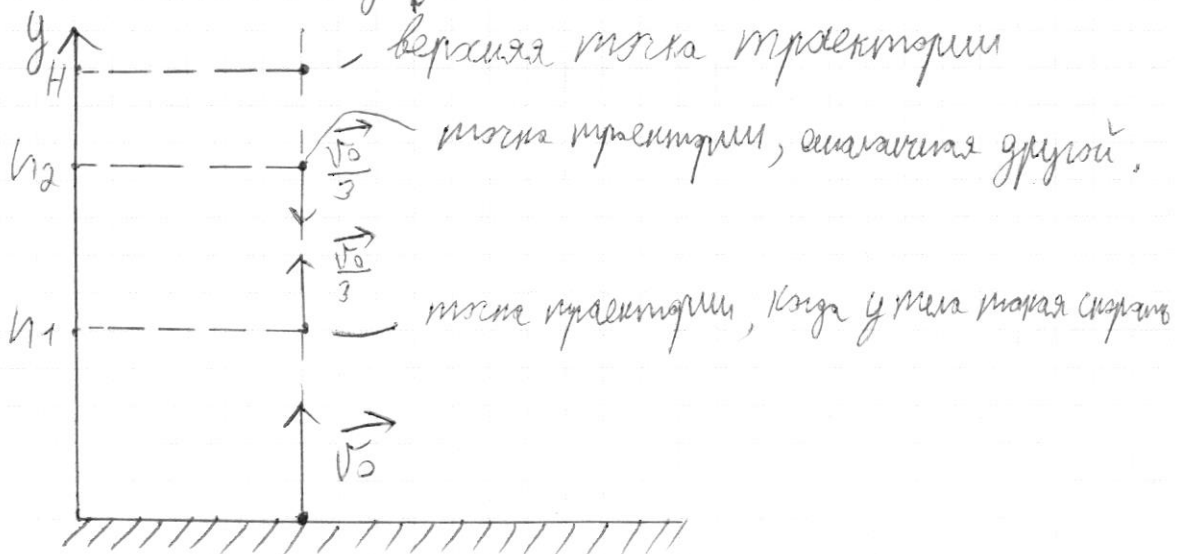 y
H
верхняя точка траектории
h2
v0/3
точка траектории, аналогичная другой.
v0/3
h1
точка траектории, когда у тела такая скорость
v0